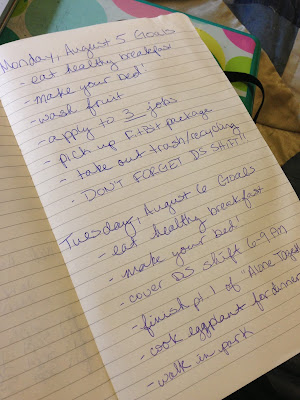 Monday, August 5 Goals
- eat healthy breakfast
- make your bed!
- wash fruit
- apply to 3 jobs
- pick up FitBit package
- take out trash/recycling
- DON'T FORGET DS SHIFT!!
Tuesday, August 6 Goals
- eat healthy breakfast
- make your bed!
- cover DS shift 6-9 AM
- finish pt. 1 of "Alone Together
- cook eggplant for dinner
- walk in park